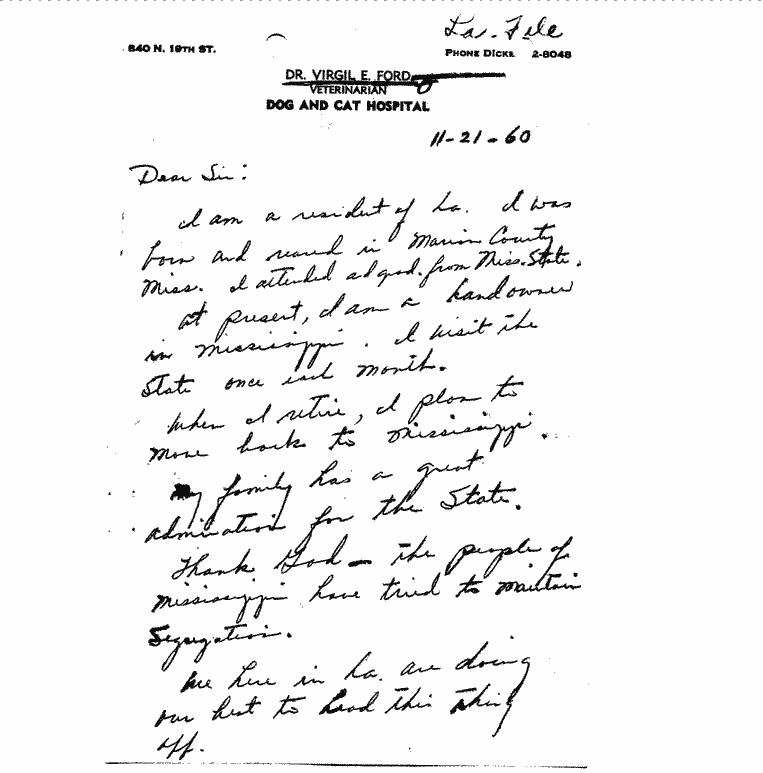 La. File
840 N. 19TH ST.
PHONE DICKS 2-8048
DR. VIRGIL E. FORD
VETERINARIAN
DOG AND CAT HOSPITAL
11-21-60
Dear Sir:
I am a resident of La. I was
born and reared in Marion County
Miss. I attended ad grad. from Miss. State.
At present, I am a landowner
in Mississippi. I visit the
State once each month.
When I retire, I plan to
move back to Mississippi.
My family has a great
admiration for the State.
Thank God — the people of
Mississippi have tried to maintain
Segregation.
We here in La. are doing
our best to head this thing
off.